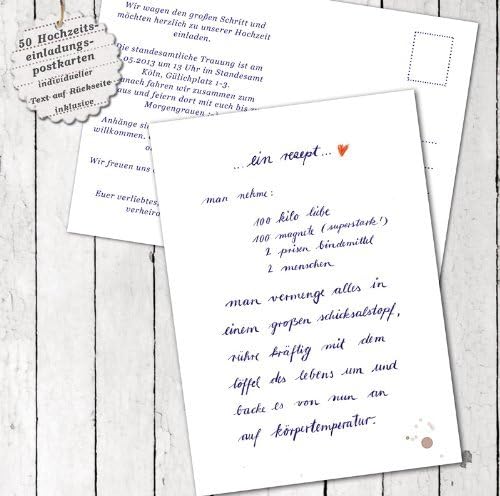 50 Hochzeits-
einladungs-
postkarten
individueller
Text auf Rückseite
inklusive
Wir wagen den großen Schritt und
möchten herzlich zu unserer Hochzeit
einladen.
Die standesamtliche Trauung ist am
.05.2013 um 13 Uhr im Standesamt
Köln, Gülichplatz 1-3.
anach fahren wir zusammen zum
aus und feiern dort mit euch bis zu
Morgengrauen
Anhänge sin
willkommen,
Wir freuen uns
Euer verliebtes,
verheira
...ein rezept...
man nehme:
100 kilo liebe
100 magnete (superstark!)
2 prisen bindemittel
2 menschen
man vermenge alles in
einem großen schicksalstopf,
rühre kräftig mit dem
löffel des lebens um und
backe es von nun an
auf körpertemperatur.